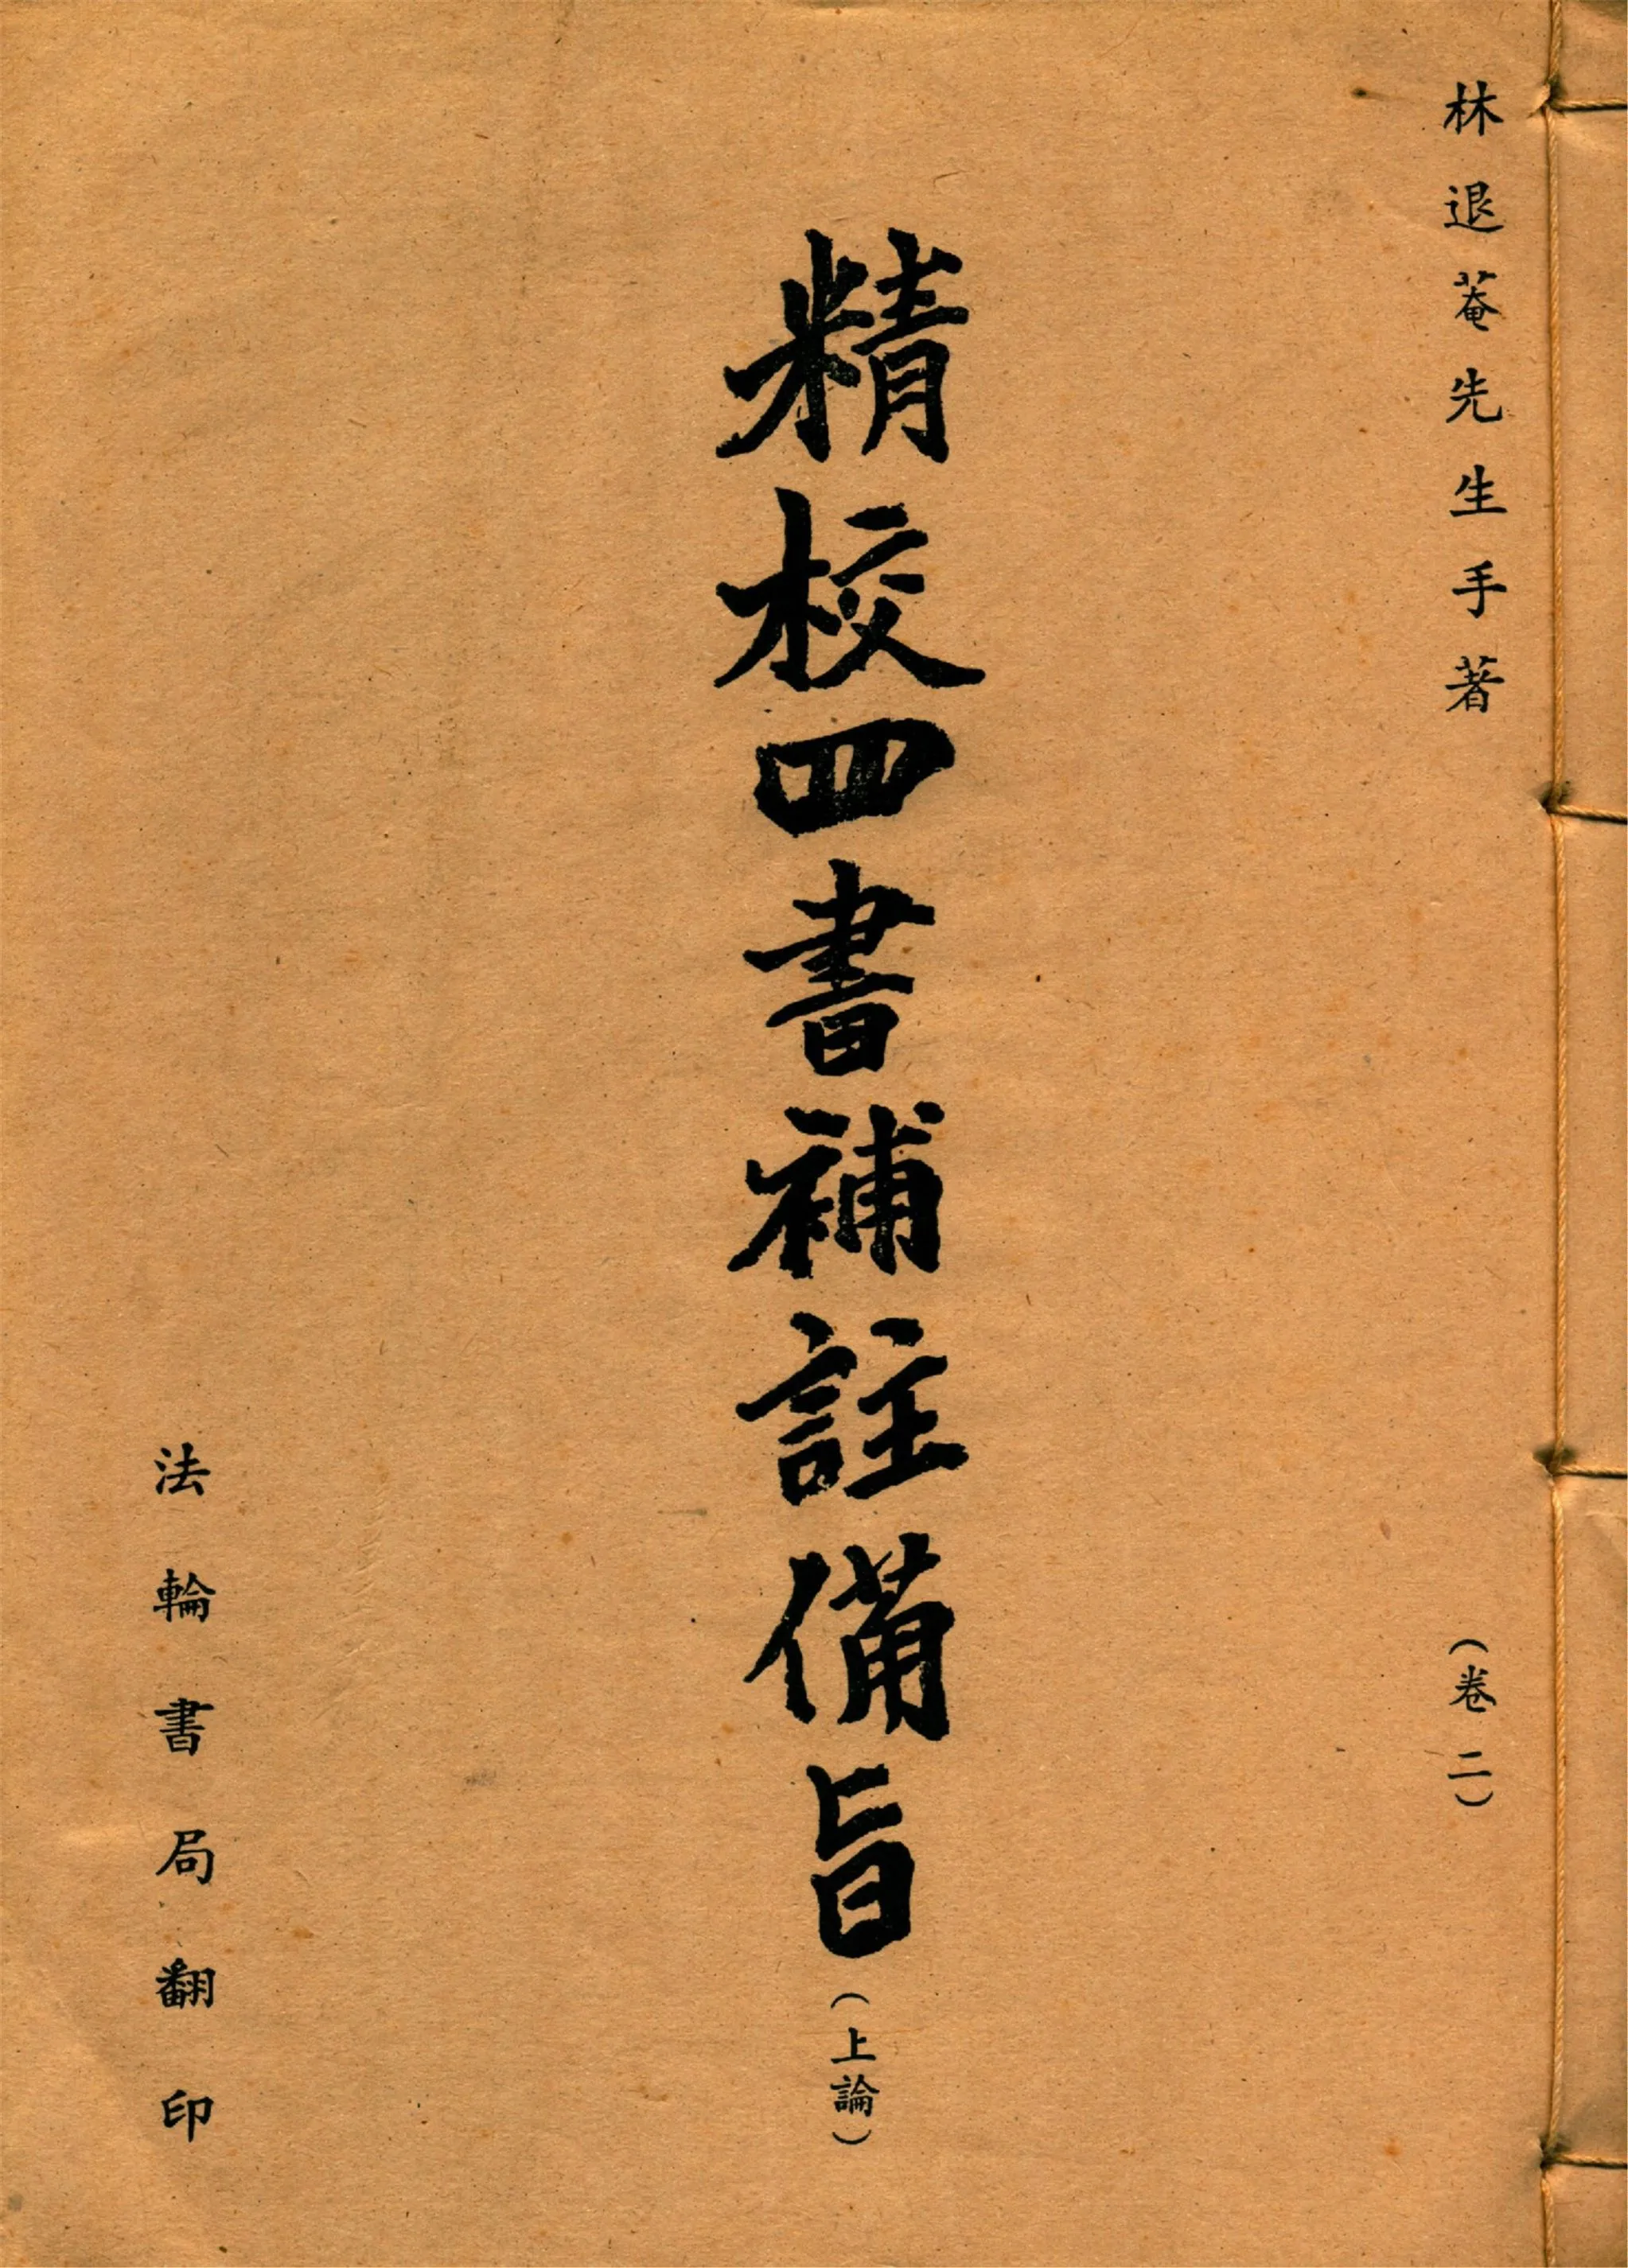 林退菴先生手著
(卷二)
精校四書補註備旨
(上論)
法輪書局翻印